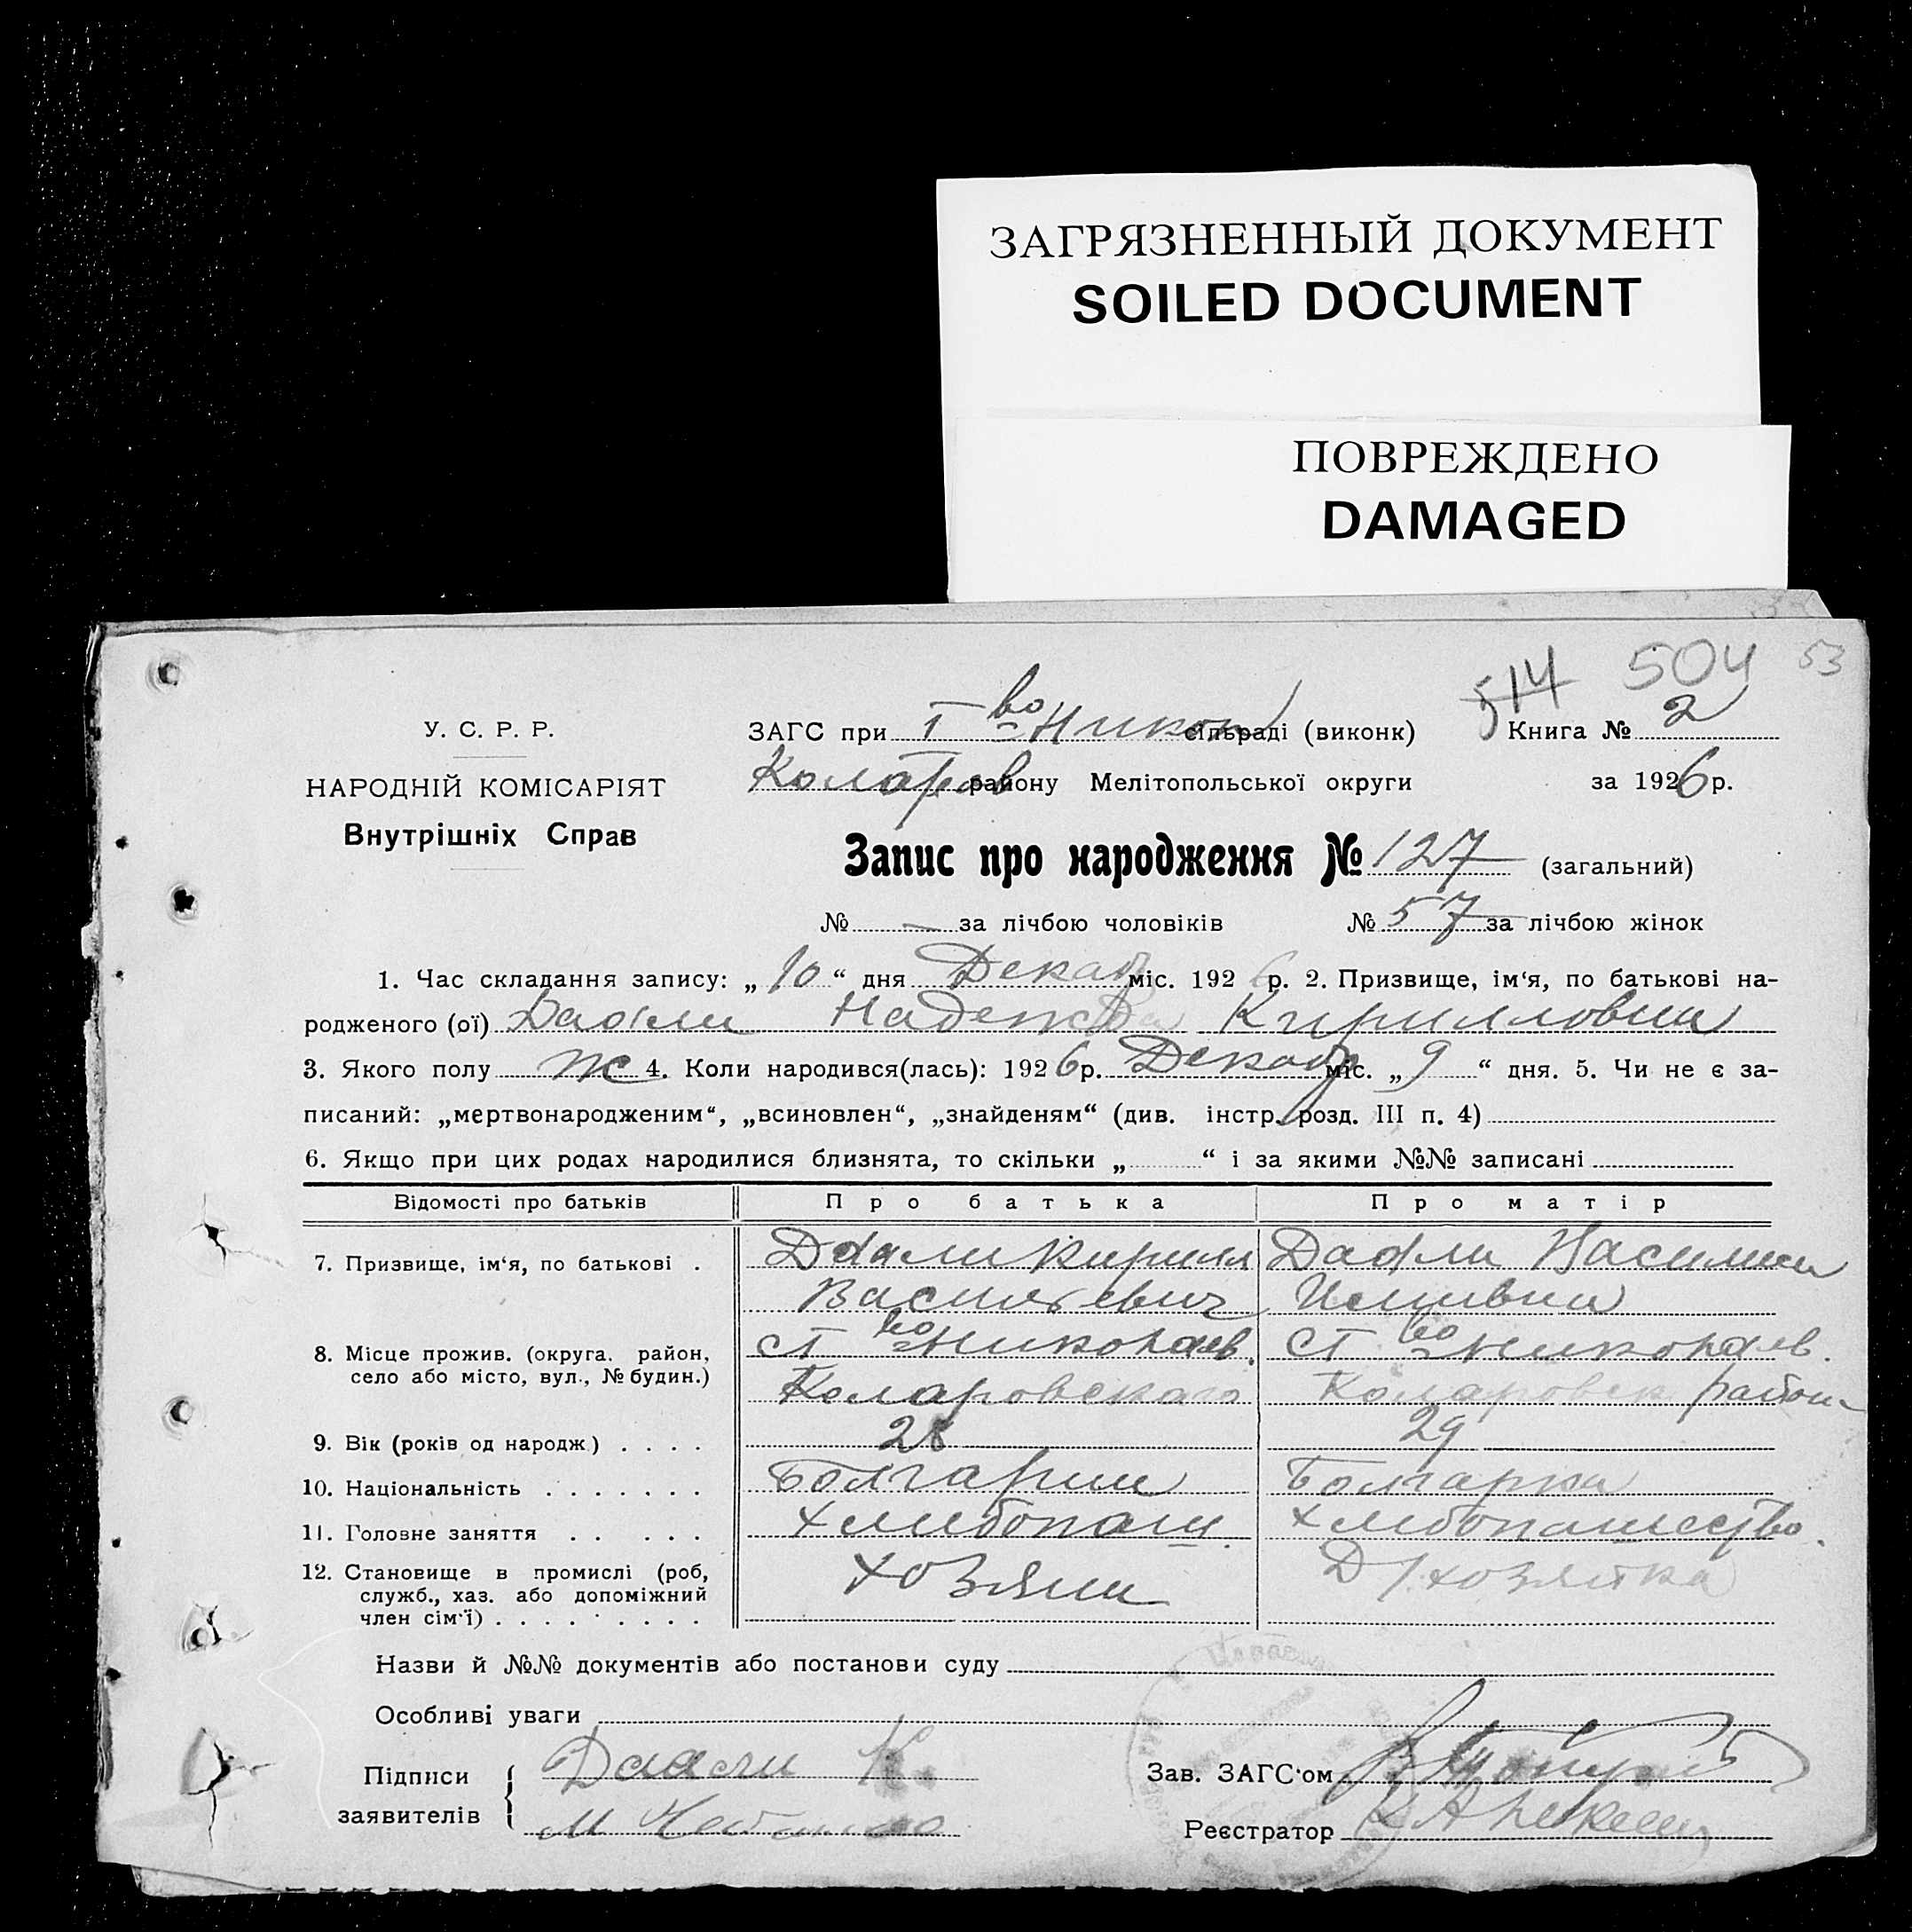 ЗАГРЯЗНЕННЫЙ ДОКУМЕНТ
SOILED DOCUMENT
ПОВРЕЖДЕНО
DAMAGED
514 504 53
У. С. Р. Р.
НАРОДНІЙ КОМІСАРІЯТ
Внутрішніх Справ
ЗАГС при І во Никол сільраді (виконк) Книга № 2
Коларов району Мелітопольської округи за 1926 р.
Запис про народження № 127 (загальний)
№ — за лічбою чоловіків № 57 за лічбою жінок
1. Час складання запису: „ 10 “ дня Декаб міс. 1926 р. 2. Призвище, ім‘я, по батькові на-
родженого (ої) Надежда Кирилловна
3. Якого полу ж 4. Коли народився(лась): 1926 р. Декабр міс. „ 9 “ дня. 5. Чи не є за-
писаний: „мертвонародженим“, „всиновлен“, „знайденям“ (див. інстр. розд. III п. 4)
6. Якщо при цих родах народилися близнята, то скільки „ “ і за якими №№ записані
Відомості про батьків Про батька Про матір
7. Призвище, ім‘я, по батькові . Кирилл
Васильевич
8. Місце прожив. (округа. район, село або місто, вул., № будин.) Ст во Николаев. Ст во Николаев.
Коларовского Коларовск район
9. Вік (років од народж) . . . . 28 29
10. Національність . . . . . . . Болгарин Болгарка
11. Головне заняття . . . . . Хлибопаш. Хлибопашество.
12. Становище в промислі (роб, служб., хаз. або допоміжний член сім‘ї) . . . . . . . . . Хозяин Д/хозяйка
Назви й №№ документів або постанови суду
Особливі уваги
Підписи
заявителів
Зав. ЗАГС‘ом
Реєстратор